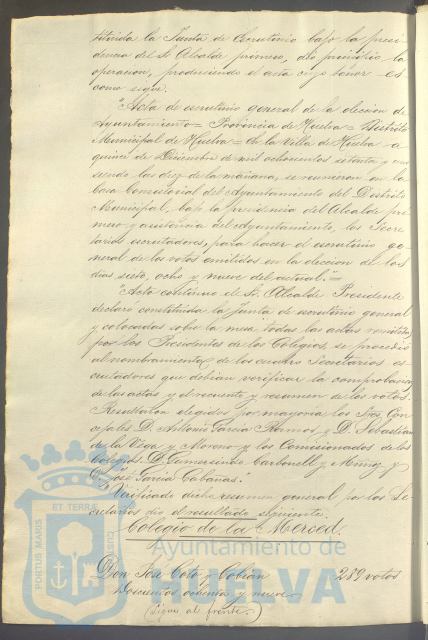 tituida la Junta de Escrutinio bajo la presi-
dencia del Sr. Alcalde primero, dio principio la
operacion, produciendo el acta cuyo tenor es
como sigue.
"Acta de escrutinio general de la eleccion de
Ayuntamiento = Provincia de Huelva = Distrito
Municipal de Huelva = En la Villa de Huelva a
quince de Diciembre de mil ochocientos setenta y uno
siendo las diez de la mañana, se reunieron en la
Casa Consistorial del Ayuntamiento del Distrito
Municipal, bajo la presidencia del Alcalde pri-
mero y asistencia del Ayuntamiento, los Secre-
tarios escrutadores, para hacer el escrutinio ge-
neral de los votos emitidos en la eleccion de los
dias seis, ocho y nueve del actual." =
"Acto continuo el Sr. Alcalde Presidente
declaró constituida la Junta de escrutinio general
y colocadas sobre la mesa todas las actas remitidas
por los Presidentes de los Colegios, se procedió
al nombramiento de los cuatro Secretarios es-
crutadores que debian verificar la comprobacion
de las actas y el recuento y resumen de los votos.
Resultaron elegidos por mayoria los Sres. Con-
cejales D. Antonio Garcia Ramos y D. Sebastian
de la Vega y Moreno y los Comisionados de los
Colegios D. Gumersindo Carbonell y Muñoz y
D. José Garcia Cabañas.
Verificado dicho resumen general por los Se-
cretarios dio el resultado siguiente.
Colegio de la Merced.
Don José Coto y Cobián 289 votos
Doscientos ochenta y nueve
(Sigue al frente)
PORTUS MARIS ET TERRAE CUSTODIA
Ayuntamiento de
HUELVA